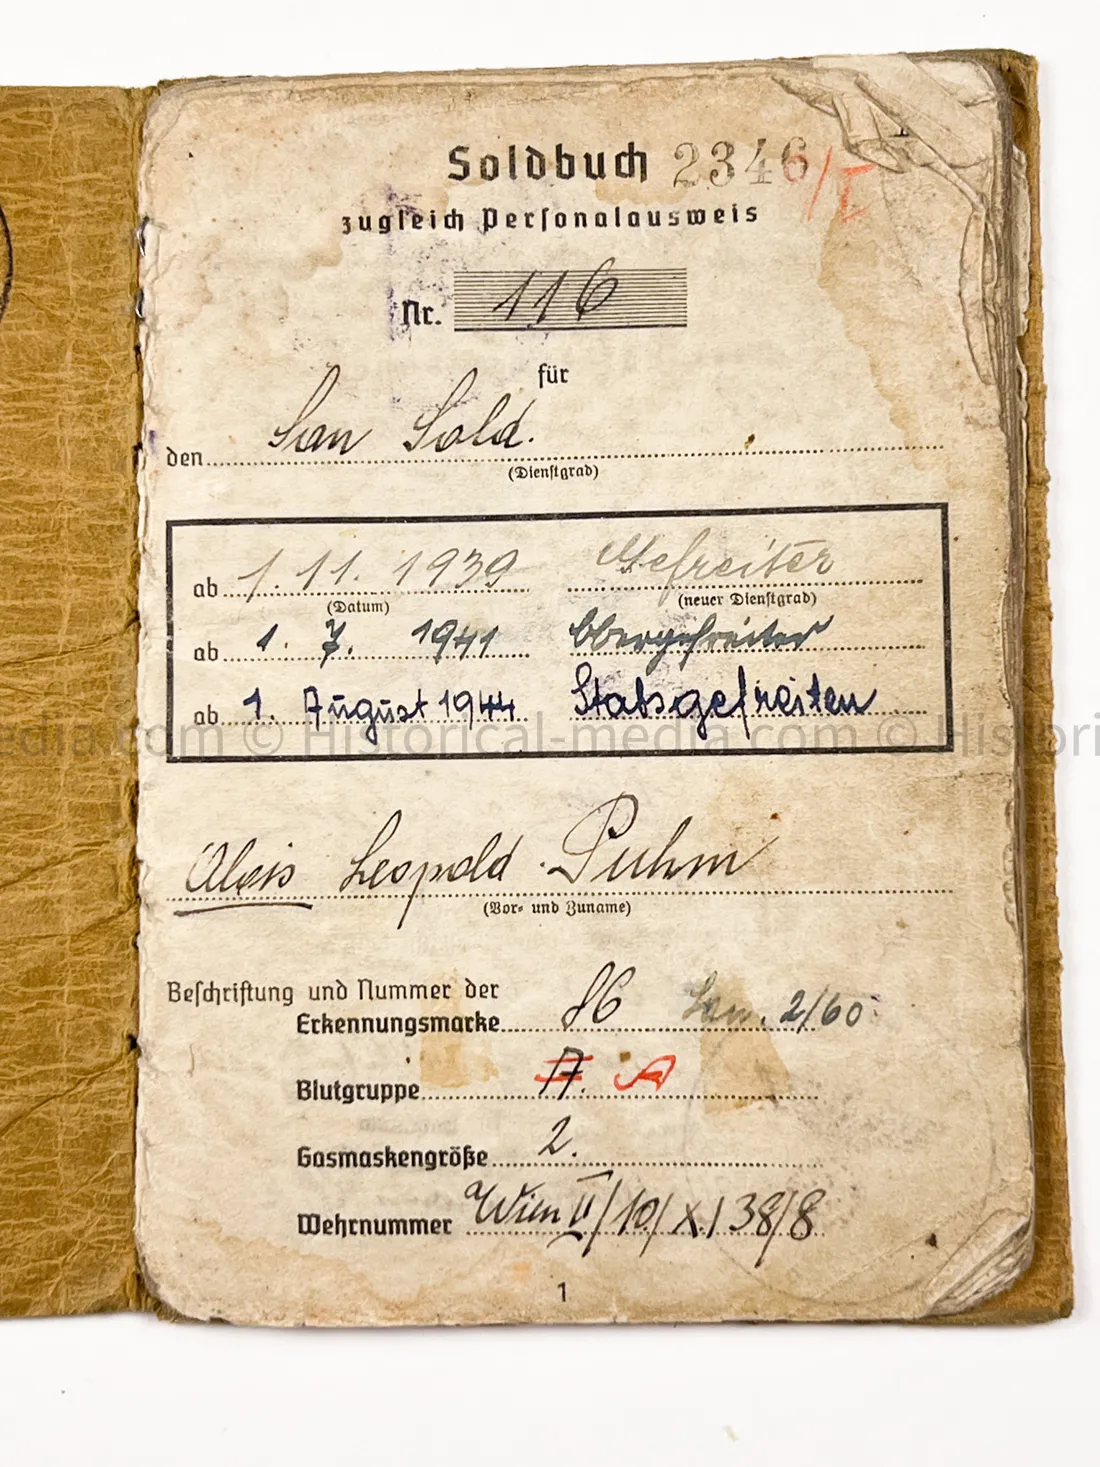 Soldbuch 2346/I
zugleich Personalausweis
Nr. 116
für
den San Sold.
(Dienstgrad)
ab 1. 11. 1939 Gefreiter
(Datum) (neuer Dienstgrad)
ab 1. 7. 1941 Obergefreiter
ab 1. August 1944 Stabsgefreiten
dia.com © Historical-media.com © Histori
Alois Leopold Puhm
(Vor- und Zuname)
Beschriftung und Nummer der
Erkennungsmarke 86 San. 2/60
Blutgruppe A. A
Gasmaskengröße 2.
Wehrnummer Wien II/10/X/38/8
1